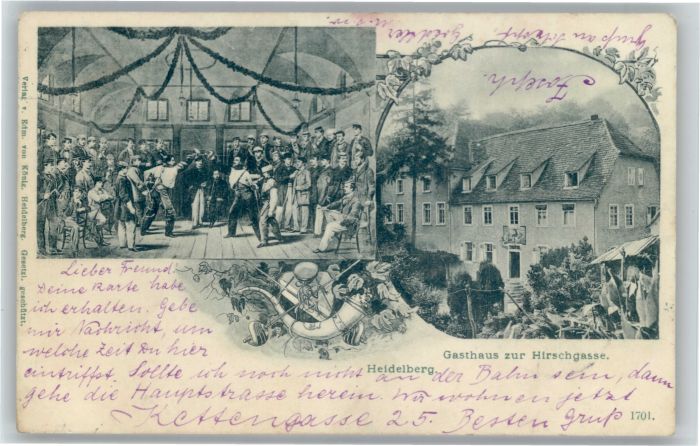 Verlag v. Edm. von König, Heidelberg. Gesetzl. geschützt.
Gruß an
Joseph.
Lieber Freund!
Deine Karte habe
ich erhalten. Gebe
mir Nachricht, um
welche Zeit Du hier
eintriffst. Sollte ich noch nicht an der Bahn sein, dann
gehe die Hauptstrasse herein. Wir wohnen jetzt
Kettengasse 25. Besten Gruß
Gasthaus zur Hirschgasse.
Heidelberg.
1701.